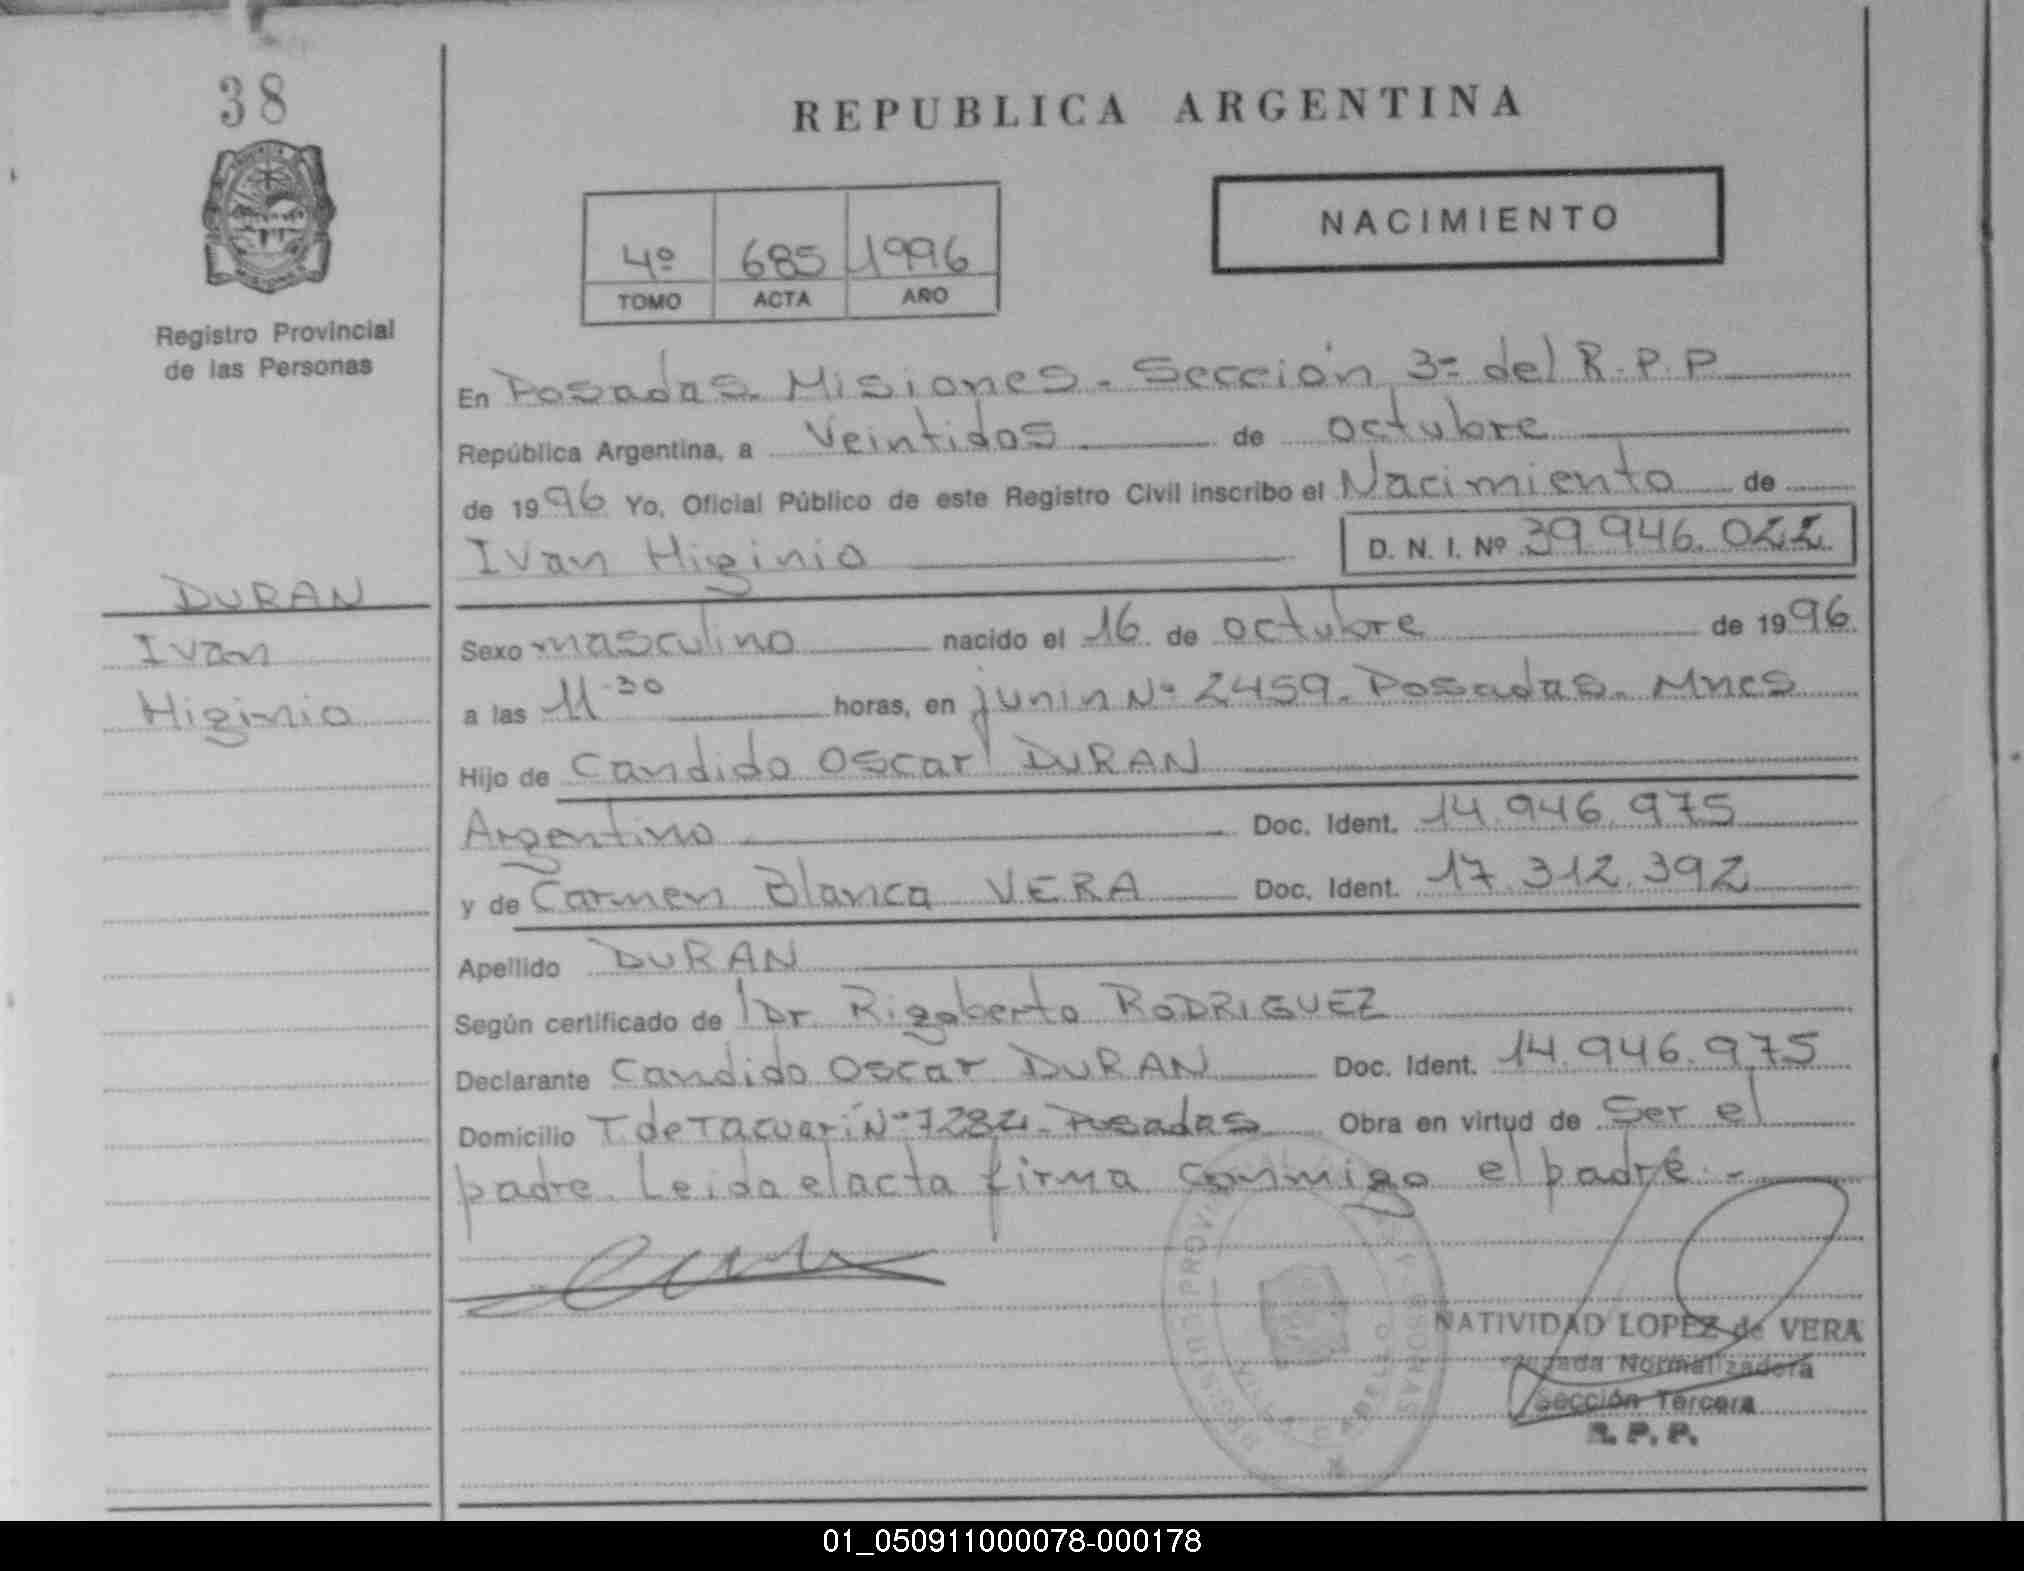 38
REPUBLICA ARGENTINA
NACIMIENTO
4º 685 1996
TOMO ACTA AÑO
Registro Provincial
de las Personas
En Posadas. Misiones. Sección 3= del R.P.P
República Argentina, a Veintidos de octubre
de 1996 Yo, Oficial Público de este Registro Civil inscribo el Nacimiento de
Ivan Higinio D. N. I. Nº 39.946.022
DURAN
Ivan
Higinio
Sexo masculino nacido el 16 de octubre de 1996
a las 11.30 horas, en junin Nº 2459. Posadas. Mnes
Hijo de Candido Oscar DURAN
Argentino Doc. Ident. 14.946.975
y de Carmen Blanca VERA Doc. Ident. 17.312.392
Apellido DURAN
Según certificado de Dr. Rigoberto RODRIGUEZ
Declarante Candido Oscar DURAN Doc. Ident. 14.946.975
Domicilio T. de Tacuarí Nº 7284. Posadas Obra en virtud de Ser el
padre. Leida el acta firma conmigo el padre.-
NATIVIDAD LOPEZ de VERA
Normalizadora
Sección Tercera
R. P. P.
01_050911000078-000178